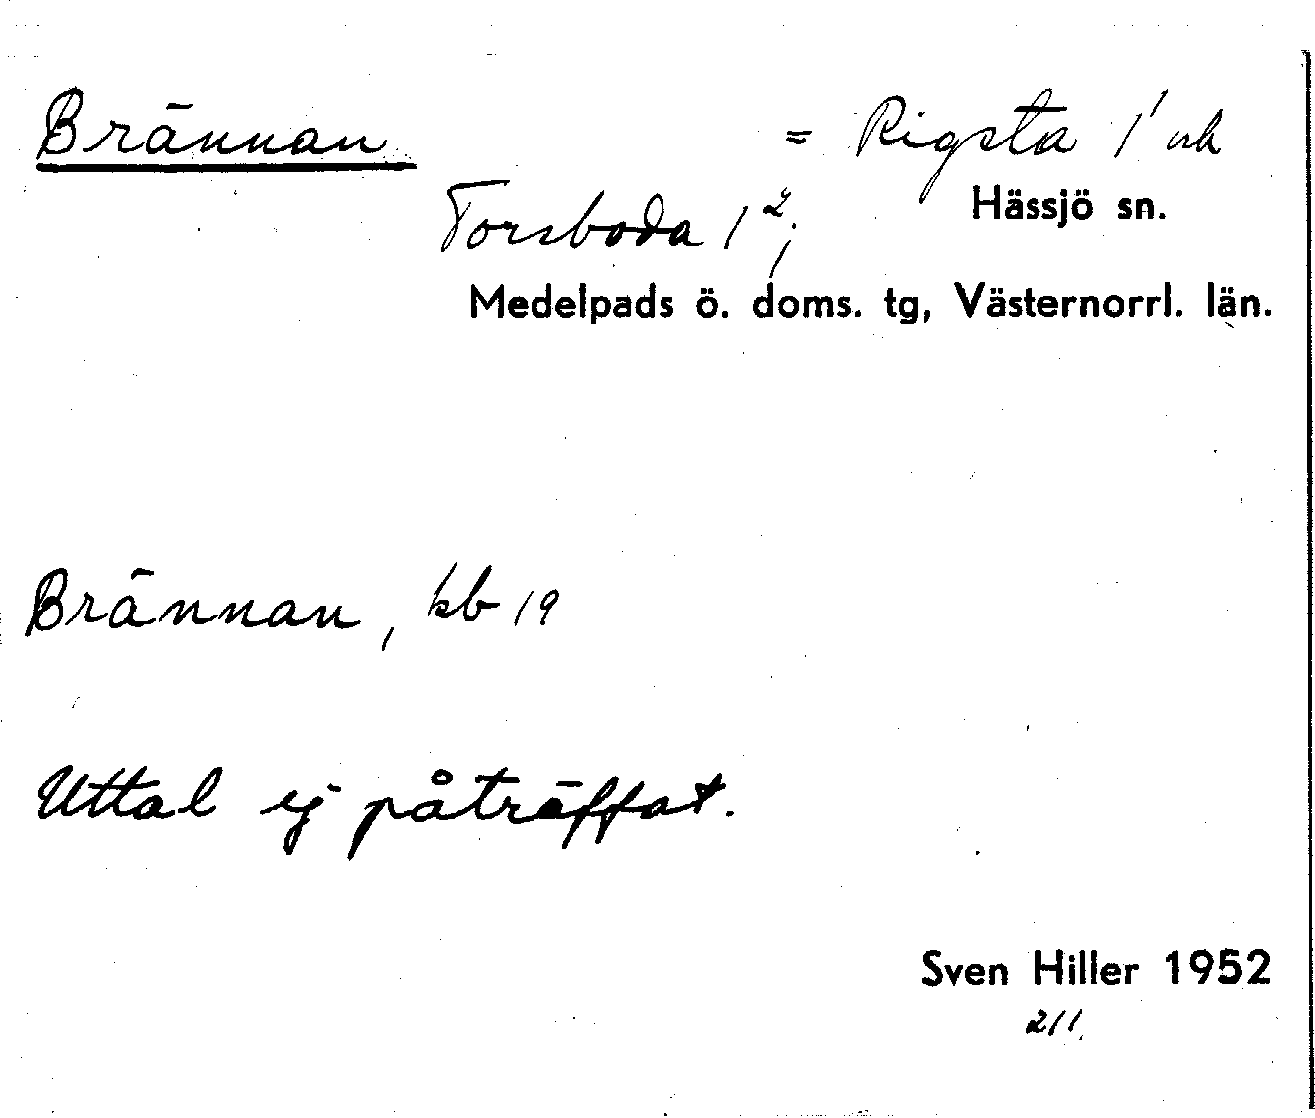 Brännan = Rigsta 1¹ och
Torsboda 1²; Hässjö sn.
Medelpads ö. doms. tg, Västernorrl. län.
Brännan, kb 19
Uttal ej påträffat.
Sven Hiller 1952
211.